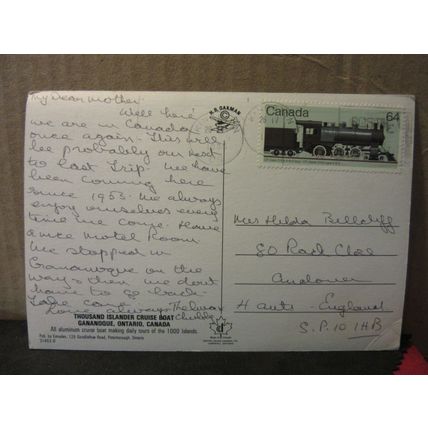 My Dear Mother.
Well here
we are in Canada
once again. This will
be probably our next
to last trip. We have
been coming here
since 1953. We always
enjoy ourselves every
time we come. Have
a nice Motel Room
We stopped in
Gananoque on the
way & then we dont
have to go back
Take care
Love always Thelma
& Chubby
THOUSAND ISLANDER CRUISE BOAT
GANANOQUE, ONTARIO, CANADA
All aluminum cruise boat making daily tours of the 1000 Islands
H.R. OAKMAN
Canada
64
Mrs Hilda
80
Andover
Hants. England
S.P.10 1HB